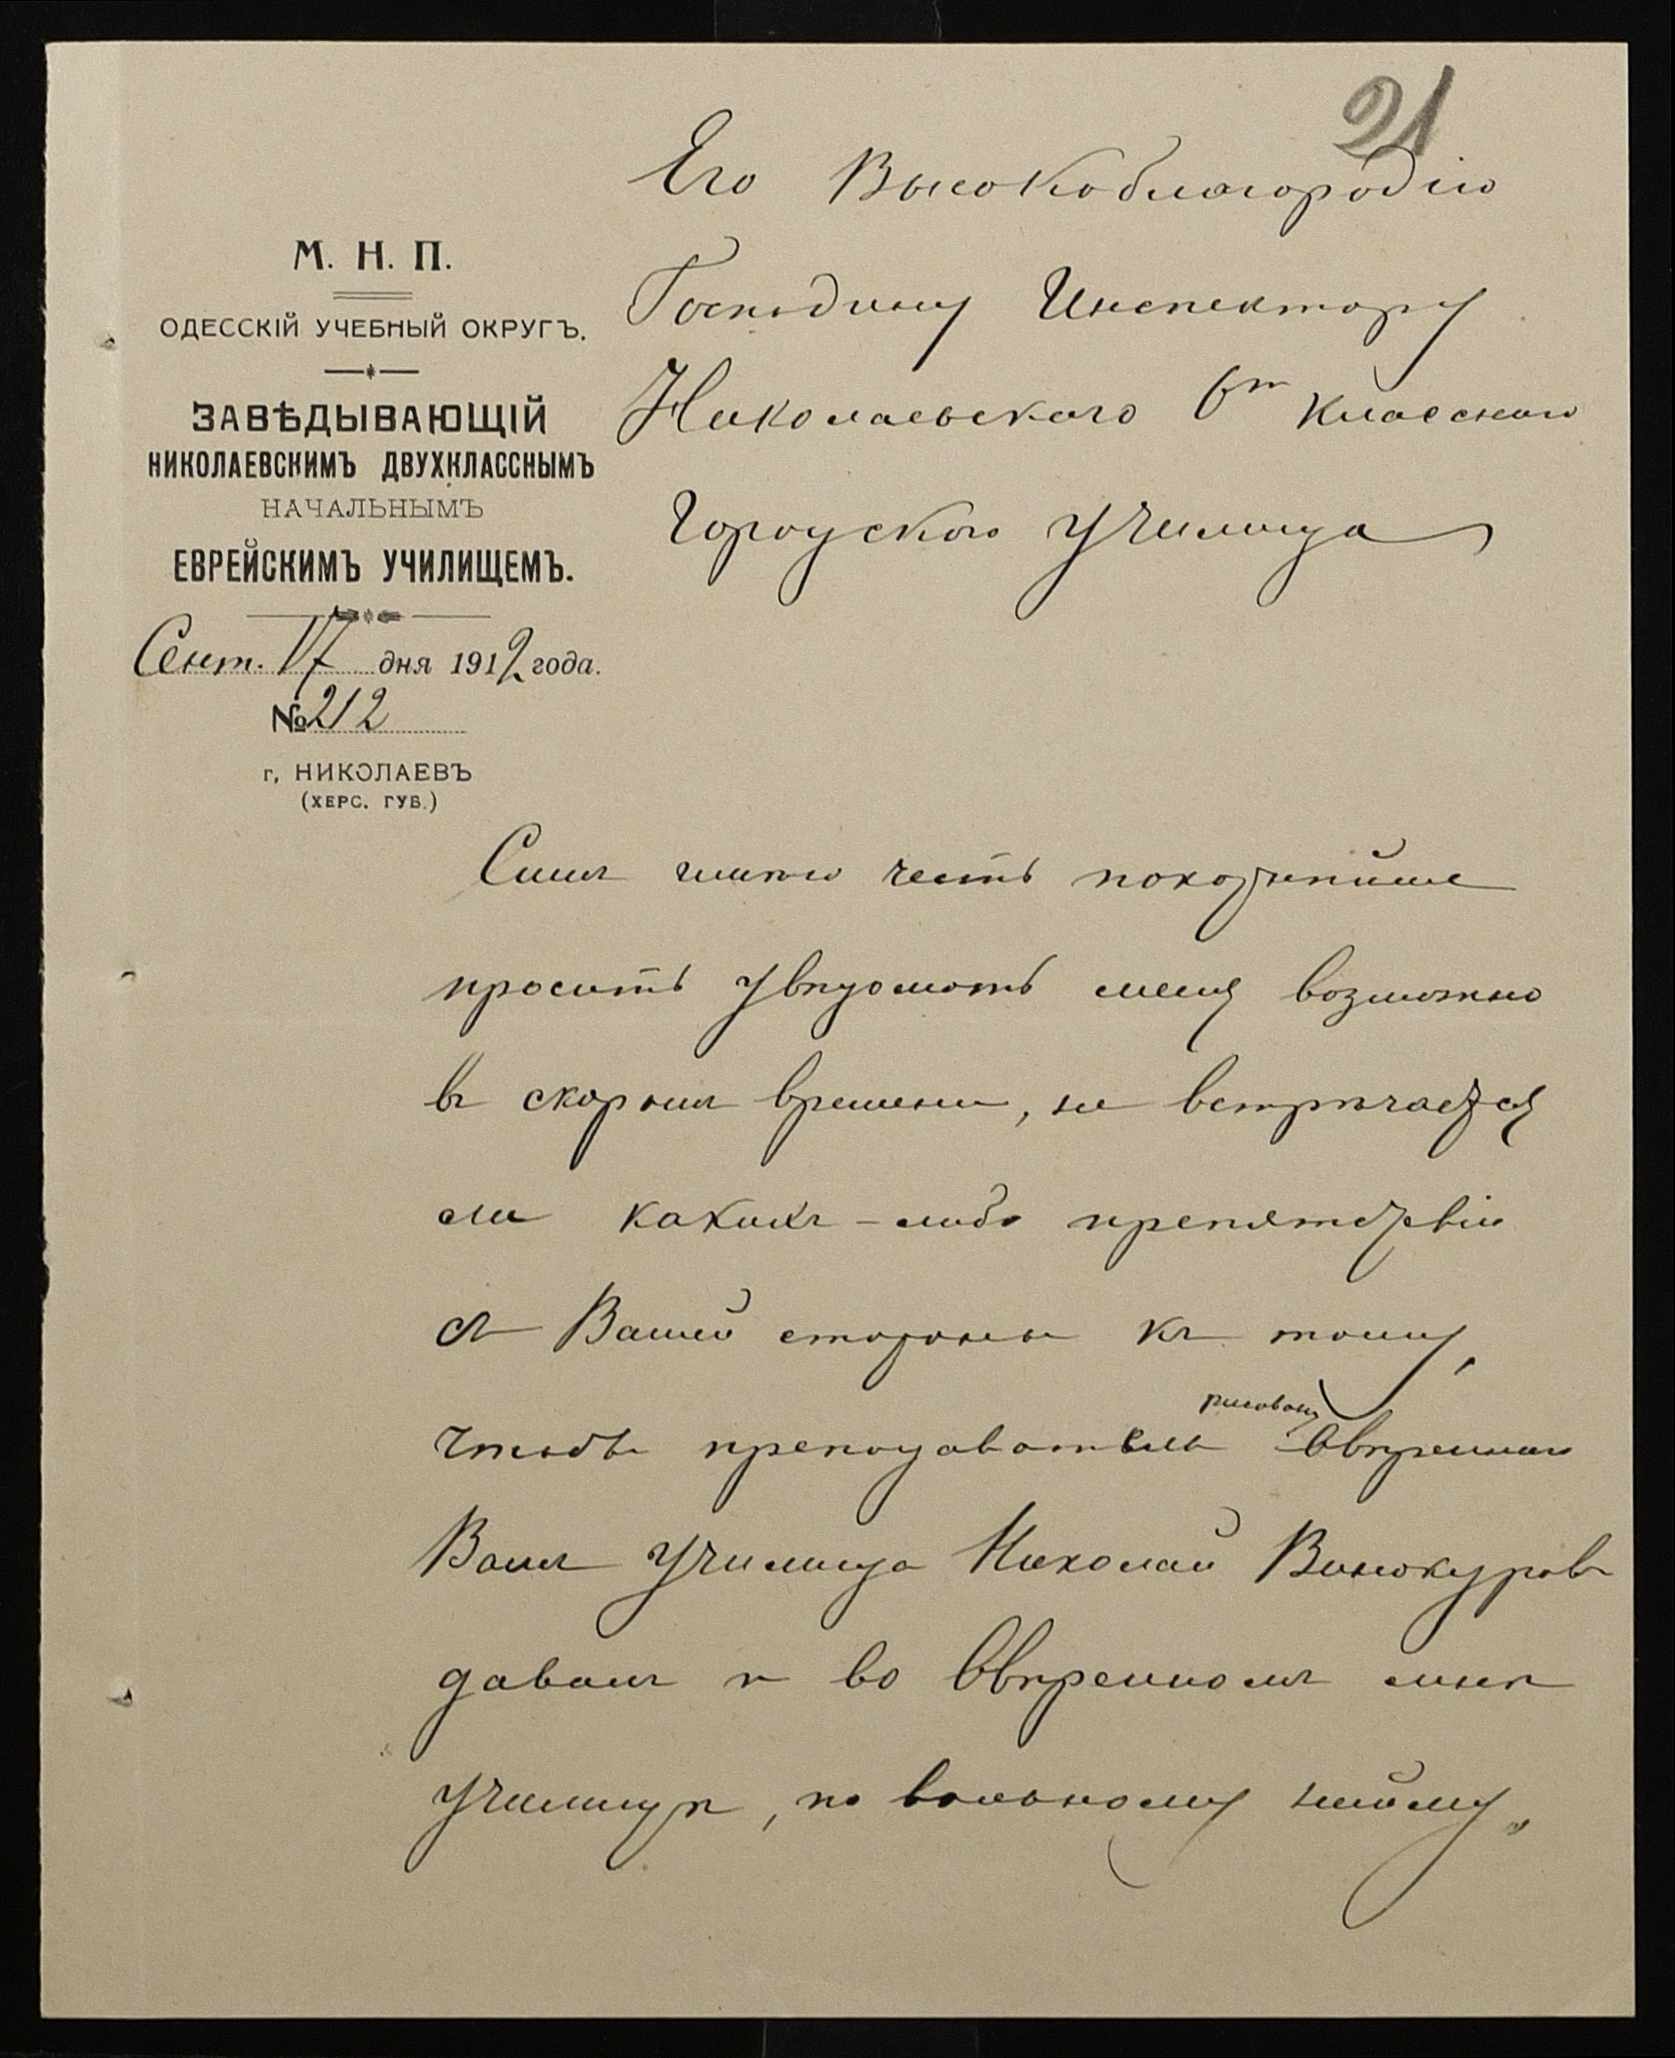 21
Его Высокоблагородiю
Господину Инспектору
Николаевского 6ти классного
Городского училища
М. Н. П.
ОДЕССКІЙ УЧЕБНЫЙ ОКРУГЪ.
ЗАВѢДЫВАЮЩІЙ
НИКОЛАЕВСКИМЪ ДВУХКЛАССНЫМЪ
НАЧАЛЬНЫМЪ
ЕВРЕЙСКИМЪ УЧИЛИЩЕМЪ.
Сент. 17 дня 1912 года.
№ 212
г. НИКОЛАЕВЪ
(ХЕРС. ГУБ.)
Симъ имѣю честь покорнѣйше
просить увѣдомить меня возможно
въ скоромъ времени, не встрѣчается
ли какихъ-либо препятствiй
съ Вашей стороны къ тому,
чтобы преподаватель рисованiя ввѣреннаго
Вамъ училища Николай Винокуровъ
давалъ и во ввѣренномъ мнѣ
училищѣ, по вольному найму,